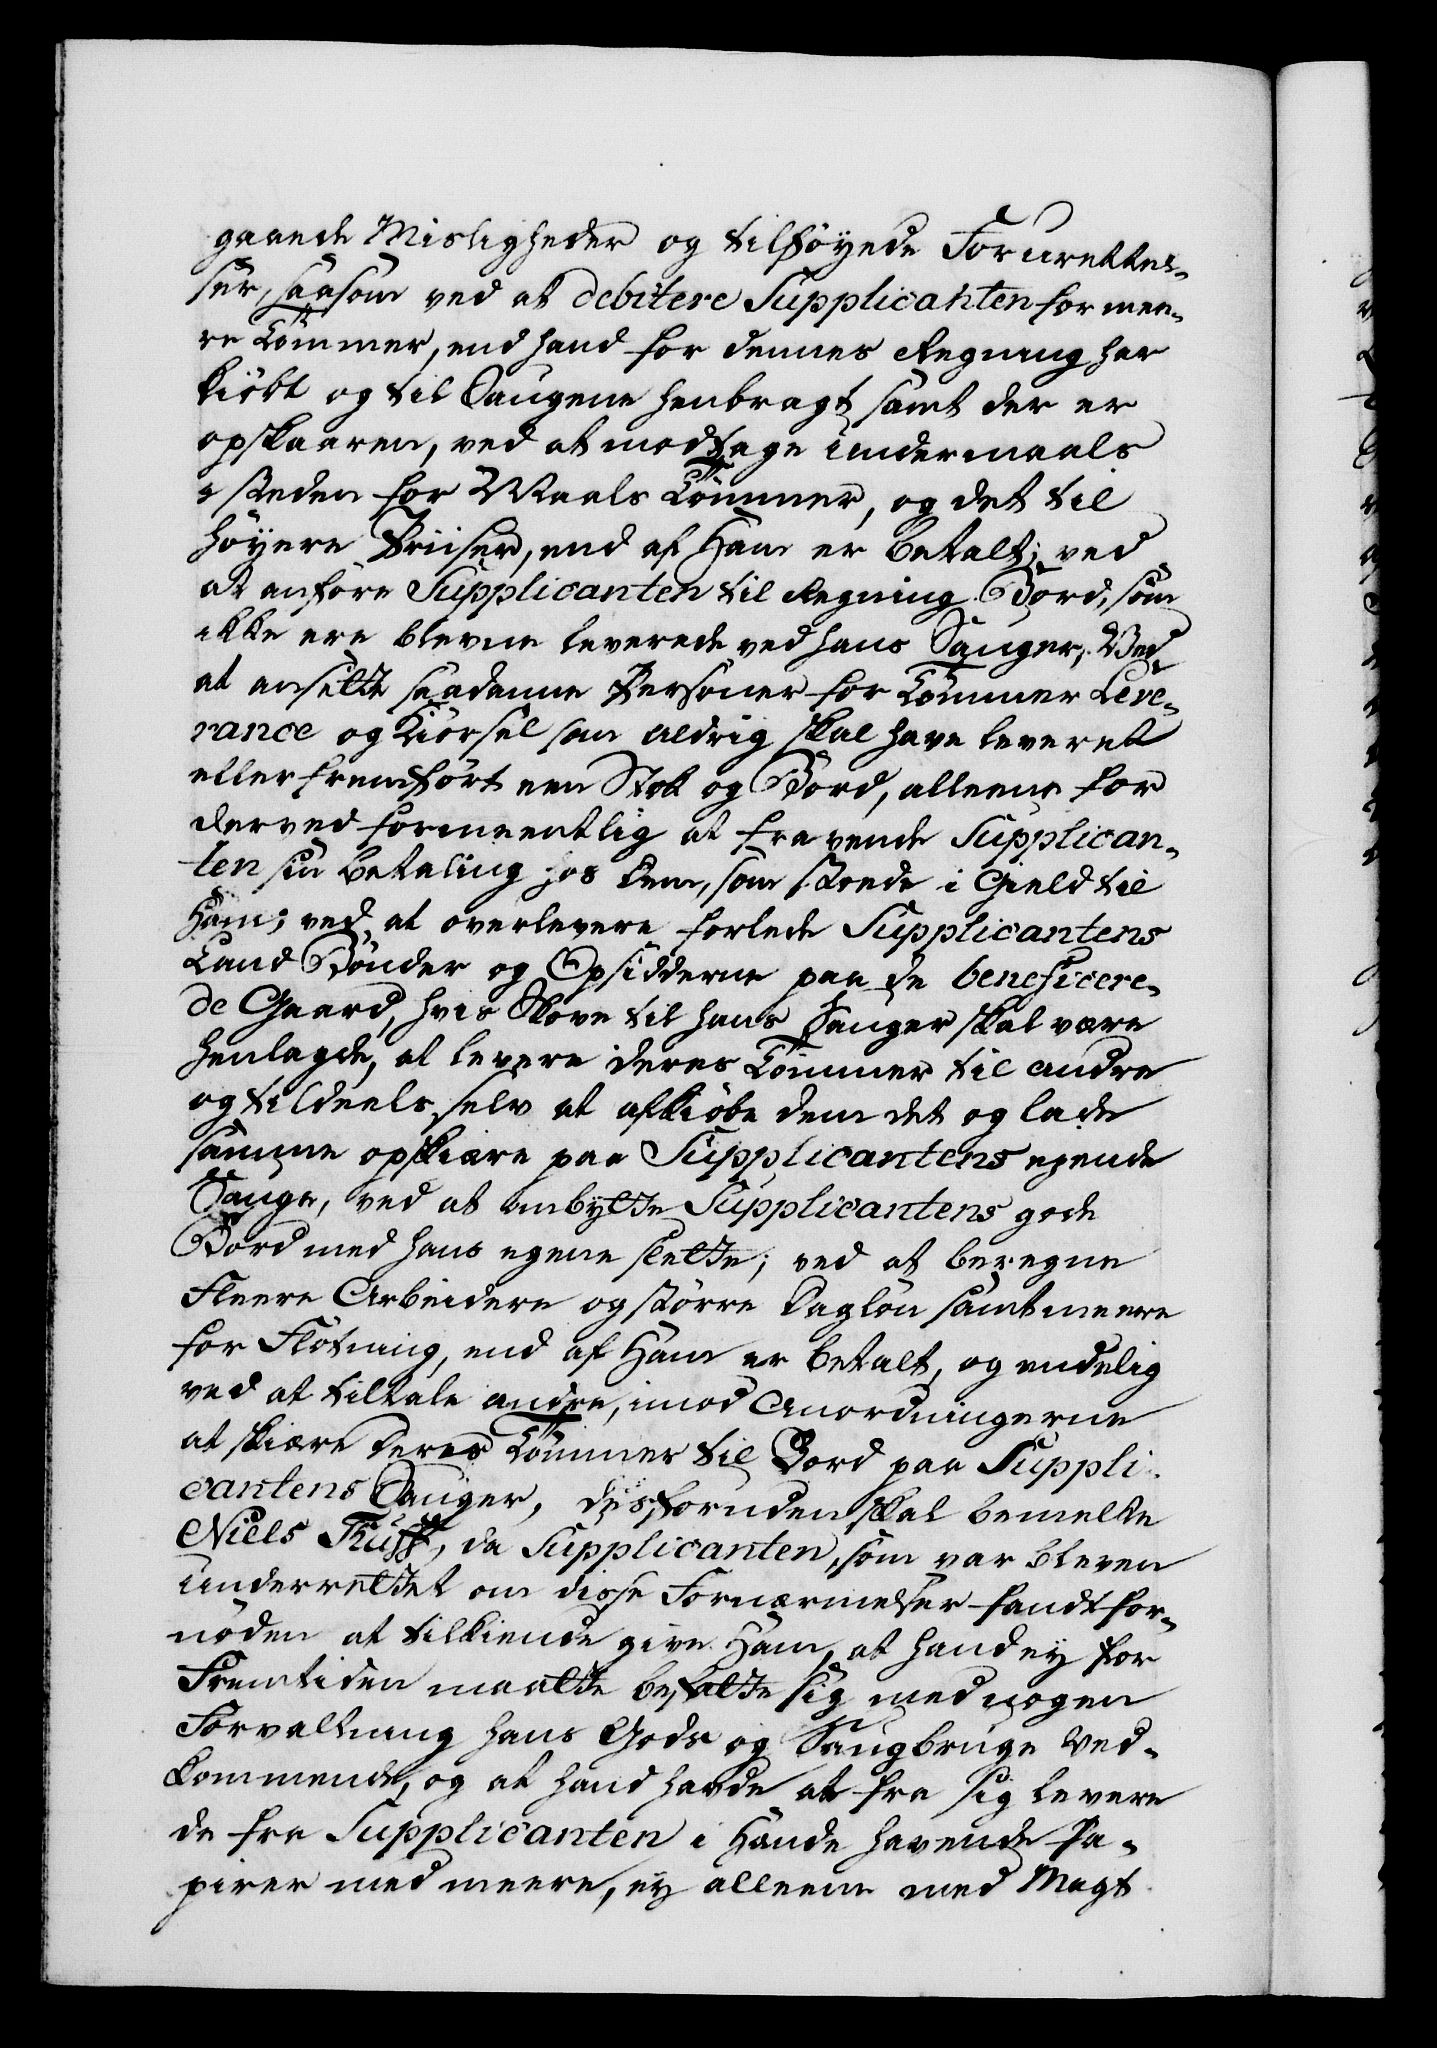 gaaende Misligheder og tilføyede Forurettel-
ser, saasom ved at debitere Supplicanten for mee-
re Tømmer, end hand for dennes Regning har
kiöbt og til Saugene henbragt samt der er
opskaaren, ved at modtage undermaals
i steden for Maals Tømmer, og det til
höyere Priiser, end af Ham er betalt; ved
at anföre Supplicanten til Regning Bord, som
ikke ere blevne leverede ved hans Sauger, Ved
at ansette saadanne Personer for Tømmer Leve-
rance og Kiörsel som aldrig skal have leveret
eller fremfört een Stok og Bord, alleene for
derved formeentlig at fravende Supplican-
ten sin betaling hos dem, som stoede i Gield til
Ham; ved at overlevere forlede Supplicantens
Land Bönder og Opsidderne paa de beneficere-
de Gaard, hvis Skove til hans Sauger skal være
henlagde, at levere deres Tømmer til andre
og tildeels selv at afkiöbe dem det og lade
samme opskiære paa Supplicantens egende
Sauge, ved at ombytte Supplicantens gode
Bord med hans egene slette; ved at beregne
Fleere Arbeidere og större Daglön samt meere
for Flötning, end af Ham er betalt, og endelig
ved at tillade andre, imod Anordningerne
at skiære deres Tømmer til Bord paa Suppli-
cantens Sauger, desforuden skal bemelte
Niels , da Supplicanten, som var bleven
underrettet om disse Fornærmelser fandt for-
nöden at tilkiende give Ham, at hand ey for
Fremtiden maatte befatte sig med nogen
Forvaltning hans Gods og Saugbruge ved-
kommende, og at hand havde at fra sig levere
de fra Supplicanten i Hænde havende Pa-
pirer med meere, ey alleene med Magt